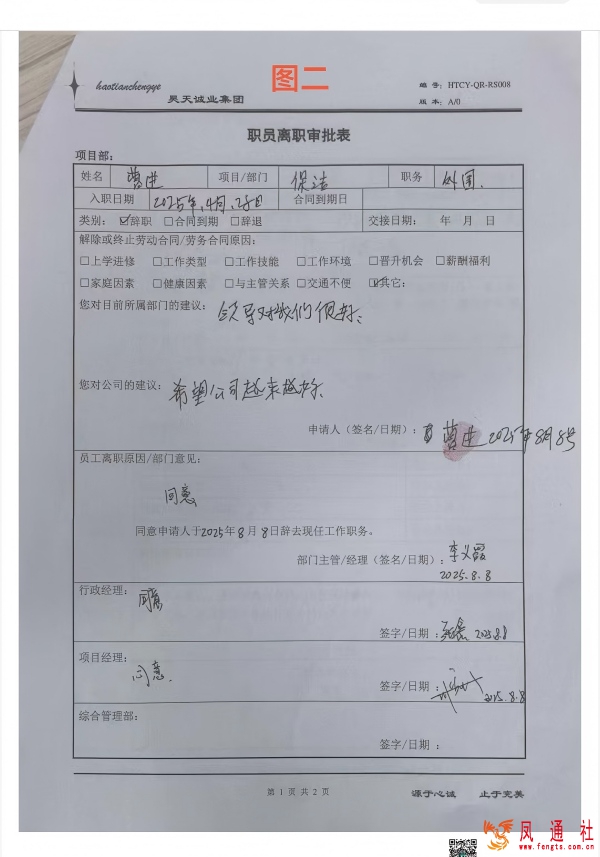 haotianchengye
图二
编 号: HTCY-QR-RS008
昊天诚业集团
版 本: A/0
职员离职审批表
项目部:
姓名 曹进 项目/部门 保洁 职务 外围.
入职日期 2025年.4月.28日 合同到期日
类别: ☑辞职 □合同到期 □辞退 交接日期: 年 月 日
解除或终止劳动合同/劳务合同原因:
□上学进修 □工作类型 □工作技能 □工作环境 □晋升机会 □薪酬福利
□家庭因素 □健康因素 □与主管关系 □交通不便 ☑其它:
您对目前所属部门的建议: 领导对我们很好、
您对公司的建议: 希望公司越来越好、
申请人（签名/日期）: 曹进 2025年8月8号
员工离职原因/部门意见:
同意
同意申请人于2025年8月8日辞去现任工作职务。
部门主管/经理（签名/日期）: 李义
2025.8.8
行政经理: 同意
签字/日期: 2025.8.8
项目经理:
同意.
签字/日期: 2025.8.8
综合管理部:
签字/日期:
第 1 页 共 2 页
源于心诚 止于完美
凤通社
www.fengts.com.cn